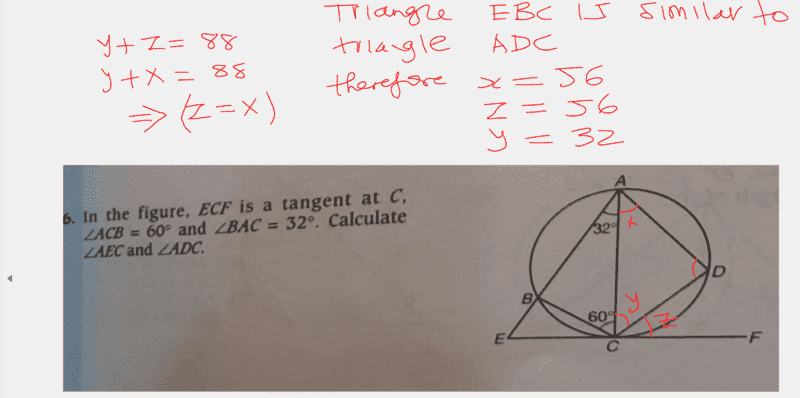 y+z= 88
y+x= 88
⇒ (z=x)
Triangle EBC is similar to
triangle ADC
therefore x = 56
z = 56
y = 32
6. In the figure, ECF is a tangent at C,
∠ACB = 60° and ∠BAC = 32°. Calculate
∠AEC and ∠ADC.
A
32°
x
D
B
60°
y
z
E
C
F